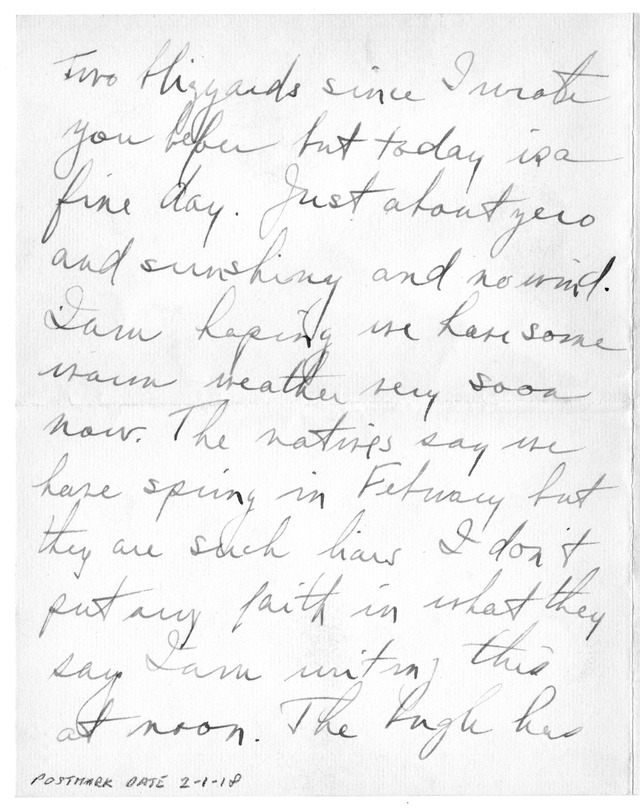 Two blizzards since I wrote
you before but today is a
fine day. Just about zero
and sunshiny and no wind.
I am hoping we have some
warm weather very soon
now. The natives say we
have spring in February but
they are such liars I don't
put any faith in what they
say I am writing this
at noon. The bugle has
POSTMARK DATE 2-1-18